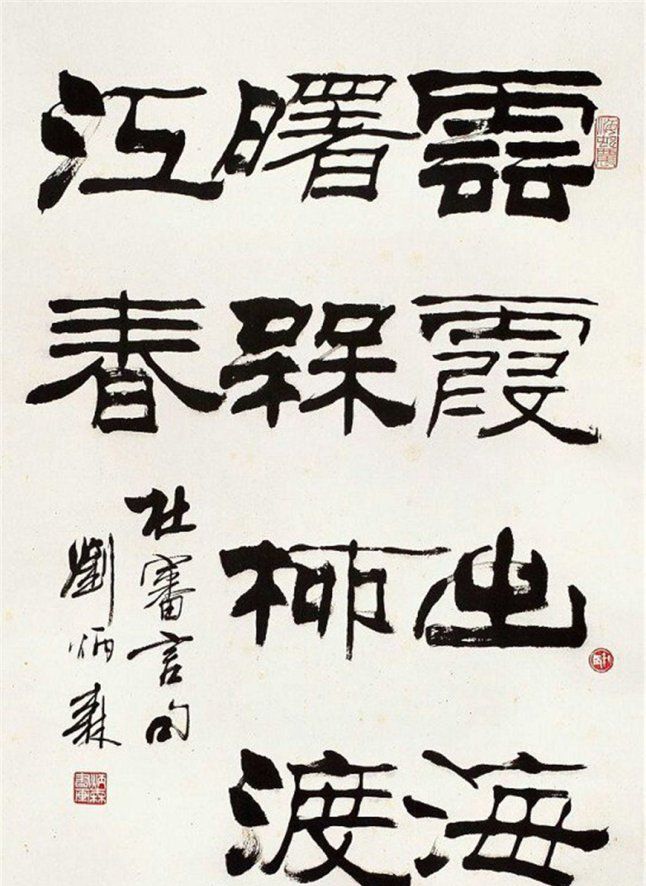 雲霞出海
曙槑柳渡
江春
杜審言句
劉炳森